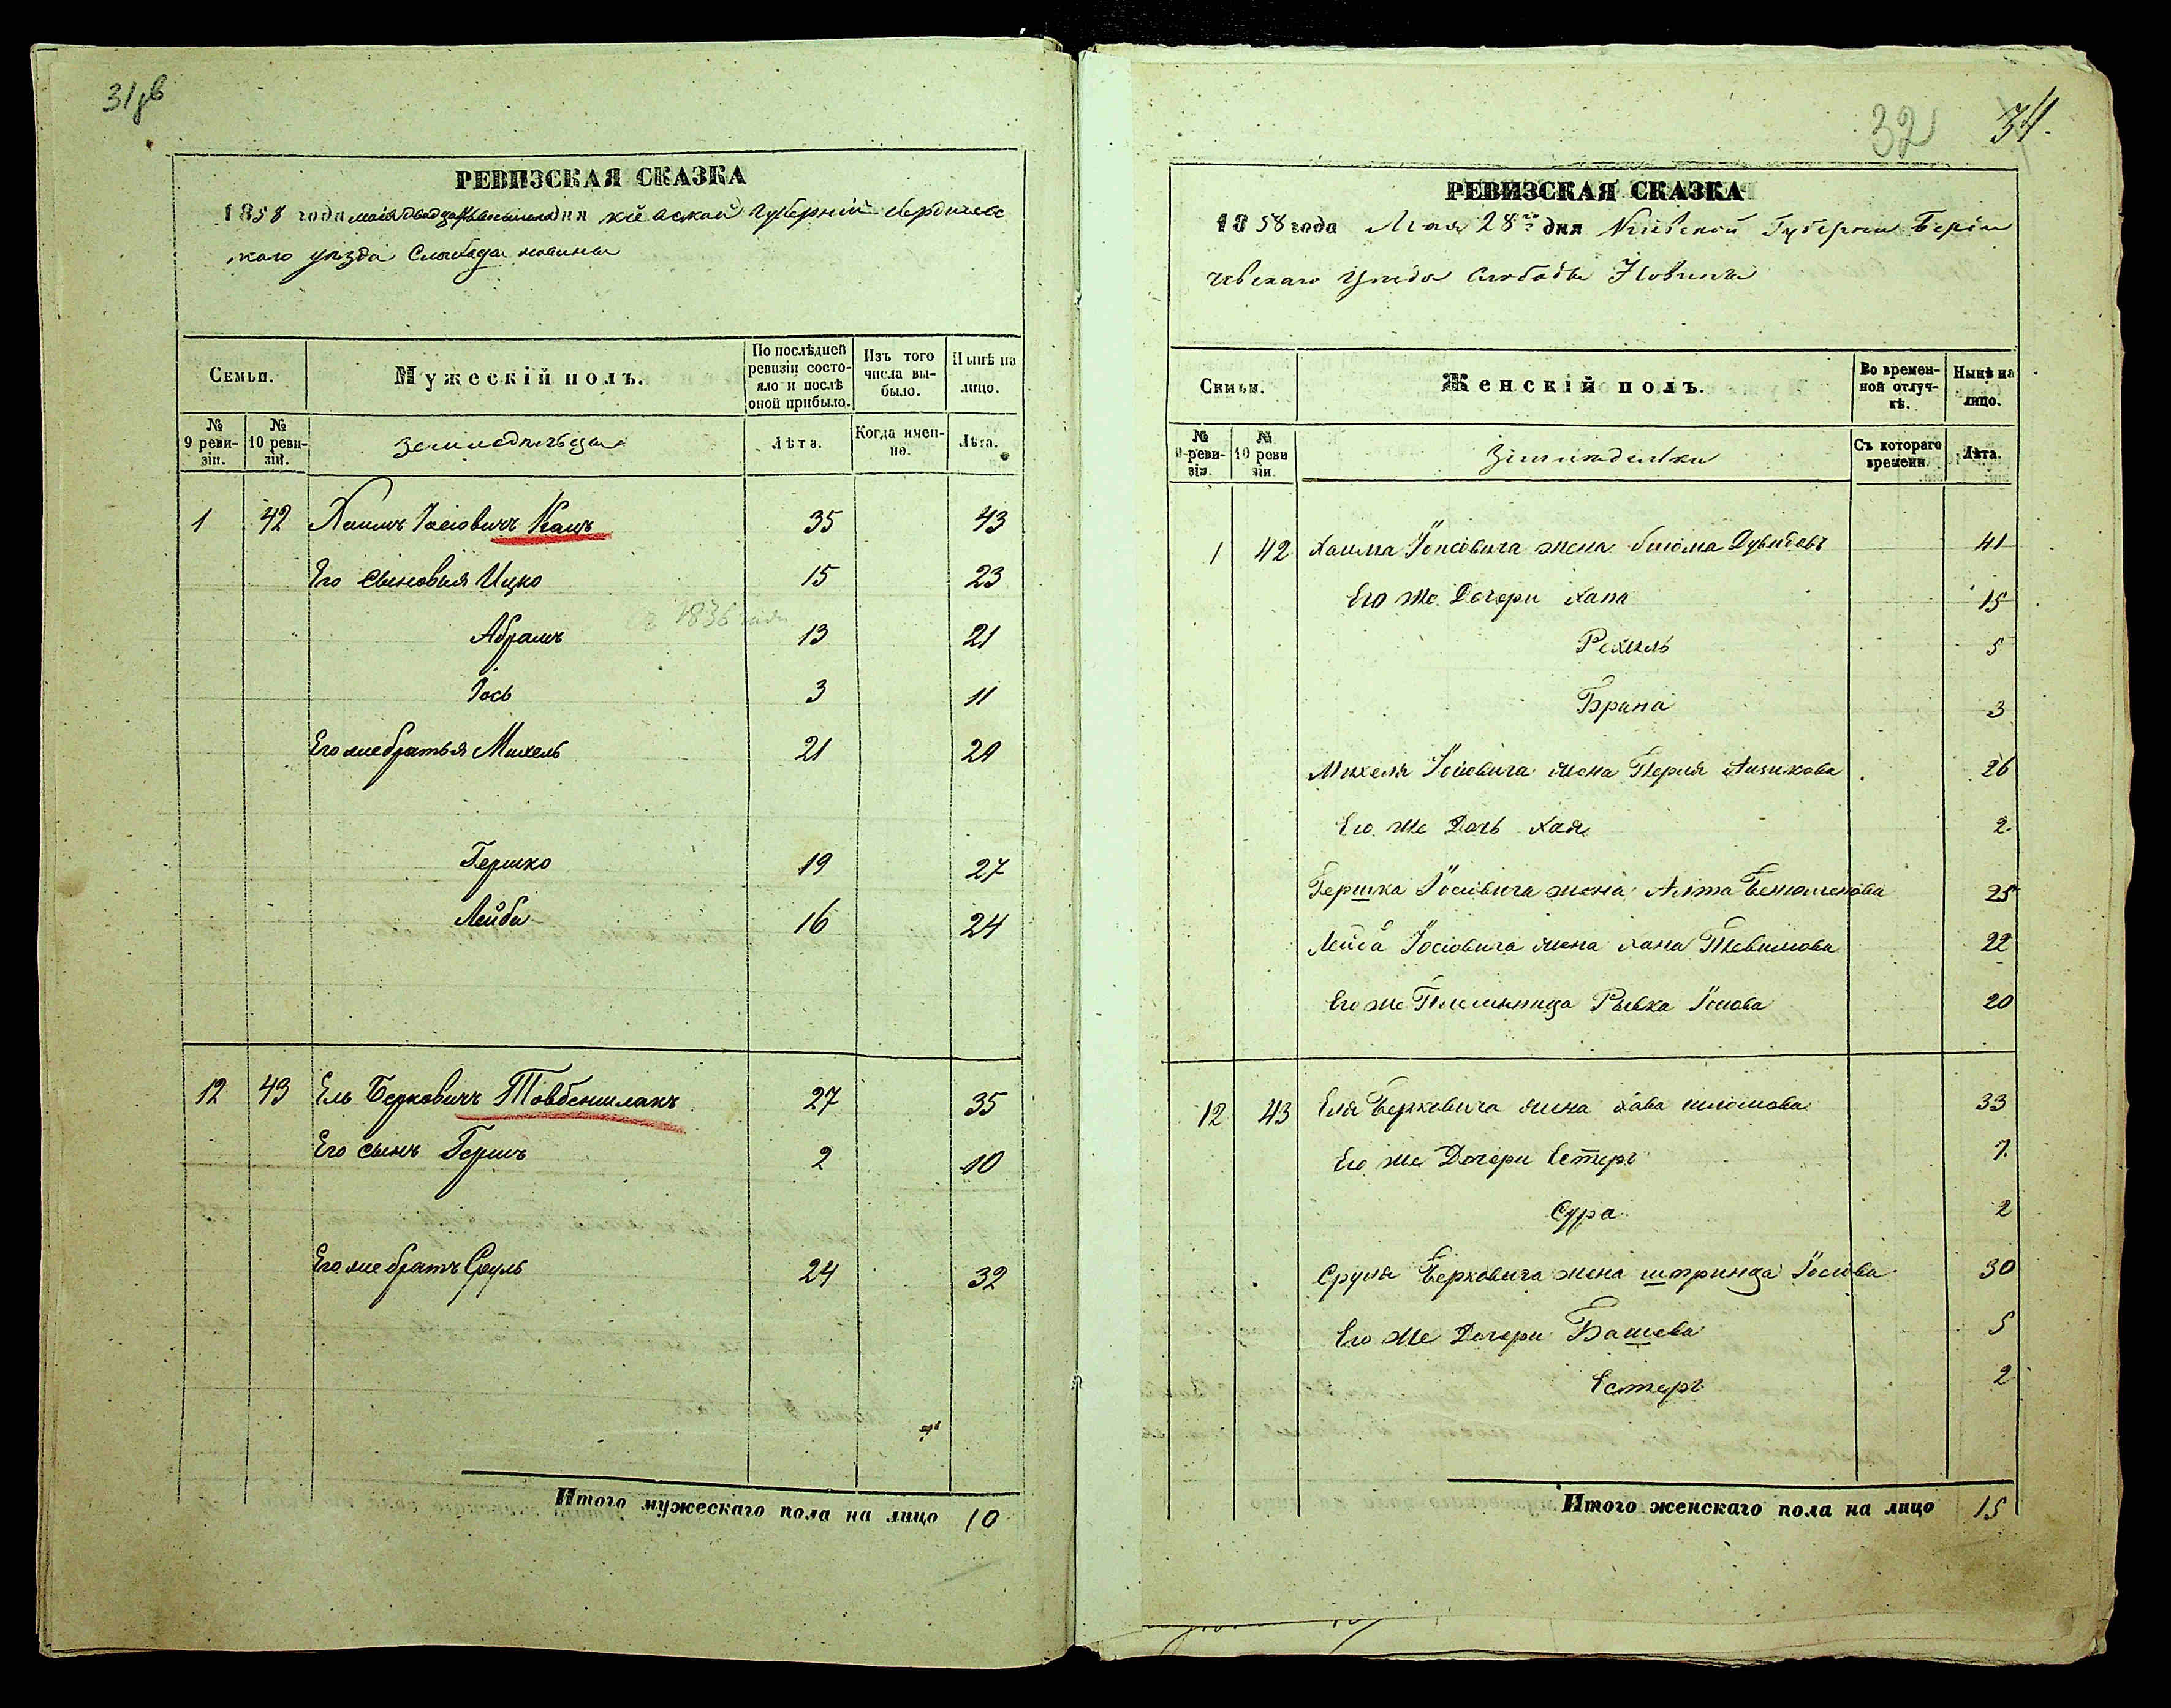 31 об
РЕВИЗСКАЯ СКАЗКА
1858 года мая двадцать восьмого дня киевской губернии Бердичевс
каго уѣзда Слобода новины
Семьи.
Мужескій полъ.
По послѣдней ревизіи состояло и послѣ оной прибыло.
Изъ того числа выбыло.
Нынѣ на лицо.
№ 9 ревизіи.
№ 10 ревизіи.
Земледельцы
Лѣта.
Когда именно.
Лѣта.
1 42 Хаимъ Іосіовичъ Кацъ 35 43
Его сыновья Ицко 15 23
1836 года
Абрамъ 13 21
Іось 3 11
Его же братья Михель 21 29
Гершко 19 27
Лейба 16 24
12 43 Ель Берковичъ Товбеншлакъ 27 35
Его сынъ Гершъ 2 10
Его же братъ Сруль 24 32
Итого мужескаго пола на лицо 10
32 34.
РЕВИЗСКАЯ СКАЗКА
1858 года Мая 28го дня Кіевской Губерніи Берди
чевскаго Уѣзда слободы Новины
Семьи.
Женскій полъ.
Во временной отлучкѣ.
Нынѣ на лицо.
№ 9 ревизіи.
№ 10 ревизіи.
Съ котораго времени.
Лѣта.
1 42 Хаима Іосіовича жена Дувидовъ 41
Его же Дочери Хана 15
Рехиль 5
Брана 3
Михеля Іосіовича жена Перля 26
Его же Дочь Хая 2
Гершка Іосіовича жена Бенюменова 25
Лейба Іосіовича жена Хана 22
Его же Племяница Рывка Іосіова 20
12 43 Еля Берковича жена Хава шлоиова 33
Его же Дочери Естеръ 7
Сура 2
Сруля Берковича жена штринца Іосіова 30
Его же Дочери Башева 5
Естеръ 2
Итого женскаго пола на лицо 15